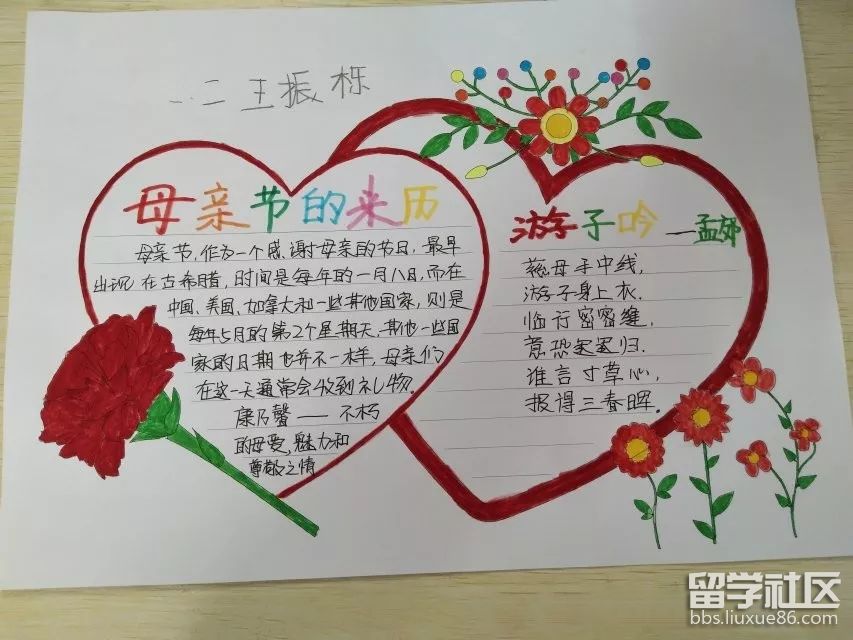 一.二 王振栎
母亲节的来历
母亲节,作为一个感谢母亲的节日,最早
出现在古希腊,时间是每年的一月八日,而在
中国、美国、加拿大和一些其他国家,则是
每年5月的第2个星期天,其他一些国
家的日期也并不一样,母亲们
在这一天通常会收到礼物.
康乃馨——不朽
的母爱,魅力和
尊敬之情
游子吟 —孟郊
慈母手中线,
游子身上衣.
临行密密缝,
意恐迟迟归.
谁言寸草心,
报得三春晖.
留学社区
bbs.liuxue86.com